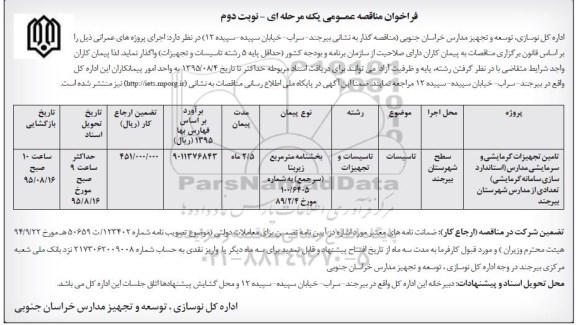 فراخوان مناقصه عمومی یک مرحله ای - نوبت دوم
اداره کل نوسازی، توسعه و تجهیز مدارس خراسان جنوبی (مناقصه گذار به نشانی بیرجند- سراب- خیابان سپیده- سپیده ۱۲) در نظر دارد: اجرای پروژه های عمرانی ذیل را
بر اساس قانون برگزاری مناقصات به پیمان کاران دارای صلاحیت از سازمان برنامه و بودجه کشور (حداقل پایه ۵ رشته تاسیسات و تجهیزات) واگذار نماید. لذا پیمان کاران
واجد شرایط متقاضی با در نظر گرفتن رسته، پایه و ظرفیت آزاد می توانند برای دریافت اسناد مربوطه حداکثر تا تاریخ ۱۳۹۵/۰۸/۴ به واحد امور پیمانکاران این اداره کل
واقع در بیرجند- سراب- خیابان سپیده- سپیده ۱۲ مراجعه نمایند. ضمنا این آگهی در پایگاه ملی اطلاع رسانی مناقصات به نشانی (http://iets.mporg.ir) نیز منتشر شده است.
پروژه | محل اجرا | موضوع | رشته | نوع پیمان | مدت پیمان | برآورد بر اساس فهارس بها ۱۳۹۵ (ریال) | تضمین ارجاع کار (ریال) | تاریخ تحویل اسناد | تاریخ بازگشایی
تامین تجهیزات گرمایشی و سرمایشی مدارس (استاندارد سازی سامانه گرمایشی) تعدادی از مدارس شهرستان بیرجند | سطح شهرستان بیرجند | تاسیسات | تاسیسات و تجهیزات | بخشنامه مترمربع زیربنا (سرجمع) به شماره ۱۰۰/۶۴۰۵ مورخ ۸۹/۲/۴ | ۲/۵ ماه | ۹۰۱۱۳۷۶۸۴۳ | ۴۵۱/۰۰۰/۰۰۰ | حداکثر ساعت ۹ صبح مورخ ۹۵/۰۸/۱۶ | ساعت ۱۰ صبح ۹۵/۰۸/۱۶
تضمین شرکت در مناقصه (ارجاع کار): ضمانت نامه های معتبر مورد اشاره در آیین نامه تضمین برای معاملات دولتی (موضوع تصویب نامه شماره ۱۲۳۴۰۲/ت ۵۰۶۵۹ هـ مورخ ۹۴/۹/۲۲
هیئت محترم وزیران) و مورد قبول کارفرما به مدت سه ماه از تاریخ افتتاح پیشنهاد و قابل تمدید برای سه ماه دیگر یا واریز نقدی به حساب شماره ۲۱۷۳۰۶۲۰۰۹۰۰۸ نزد بانک ملی شعبه
مرکزی بیرجند در وجه اداره کل نوسازی ، توسعه و تجهیز مدارس خراسان جنوبی
محل تحویل اسناد و پیشنهادات: دبیرخانه این اداره کل واقع در بیرجند- سراب- خیابان سپیده- سپیده ۱۲ و محل گشایش پیشنهادها اتاق جلسات این اداره کل می باشد.
اداره کل نوسازی ، توسعه و تجهیز مدارس خراسان جنوبی
ParsNamadData
۰۲۱-۸۸۳۴۹۶۷۰-۵